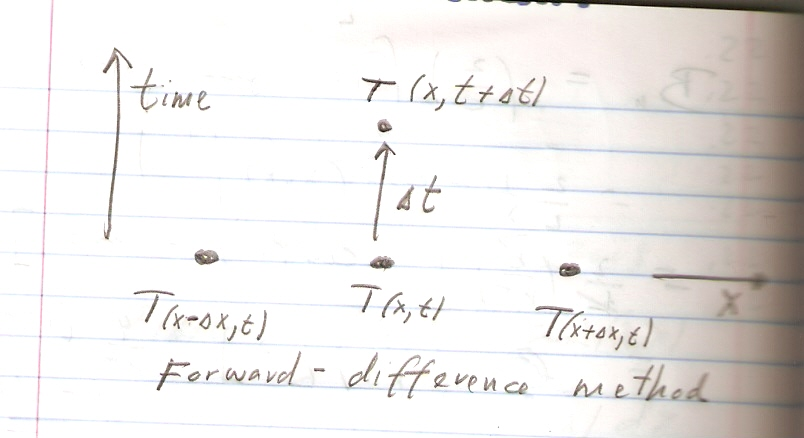 time
T (x, t+Δt)
Δt
T(x-Δx,t)
T(x,t)
T(x+Δx,t)
x
Forward-difference method